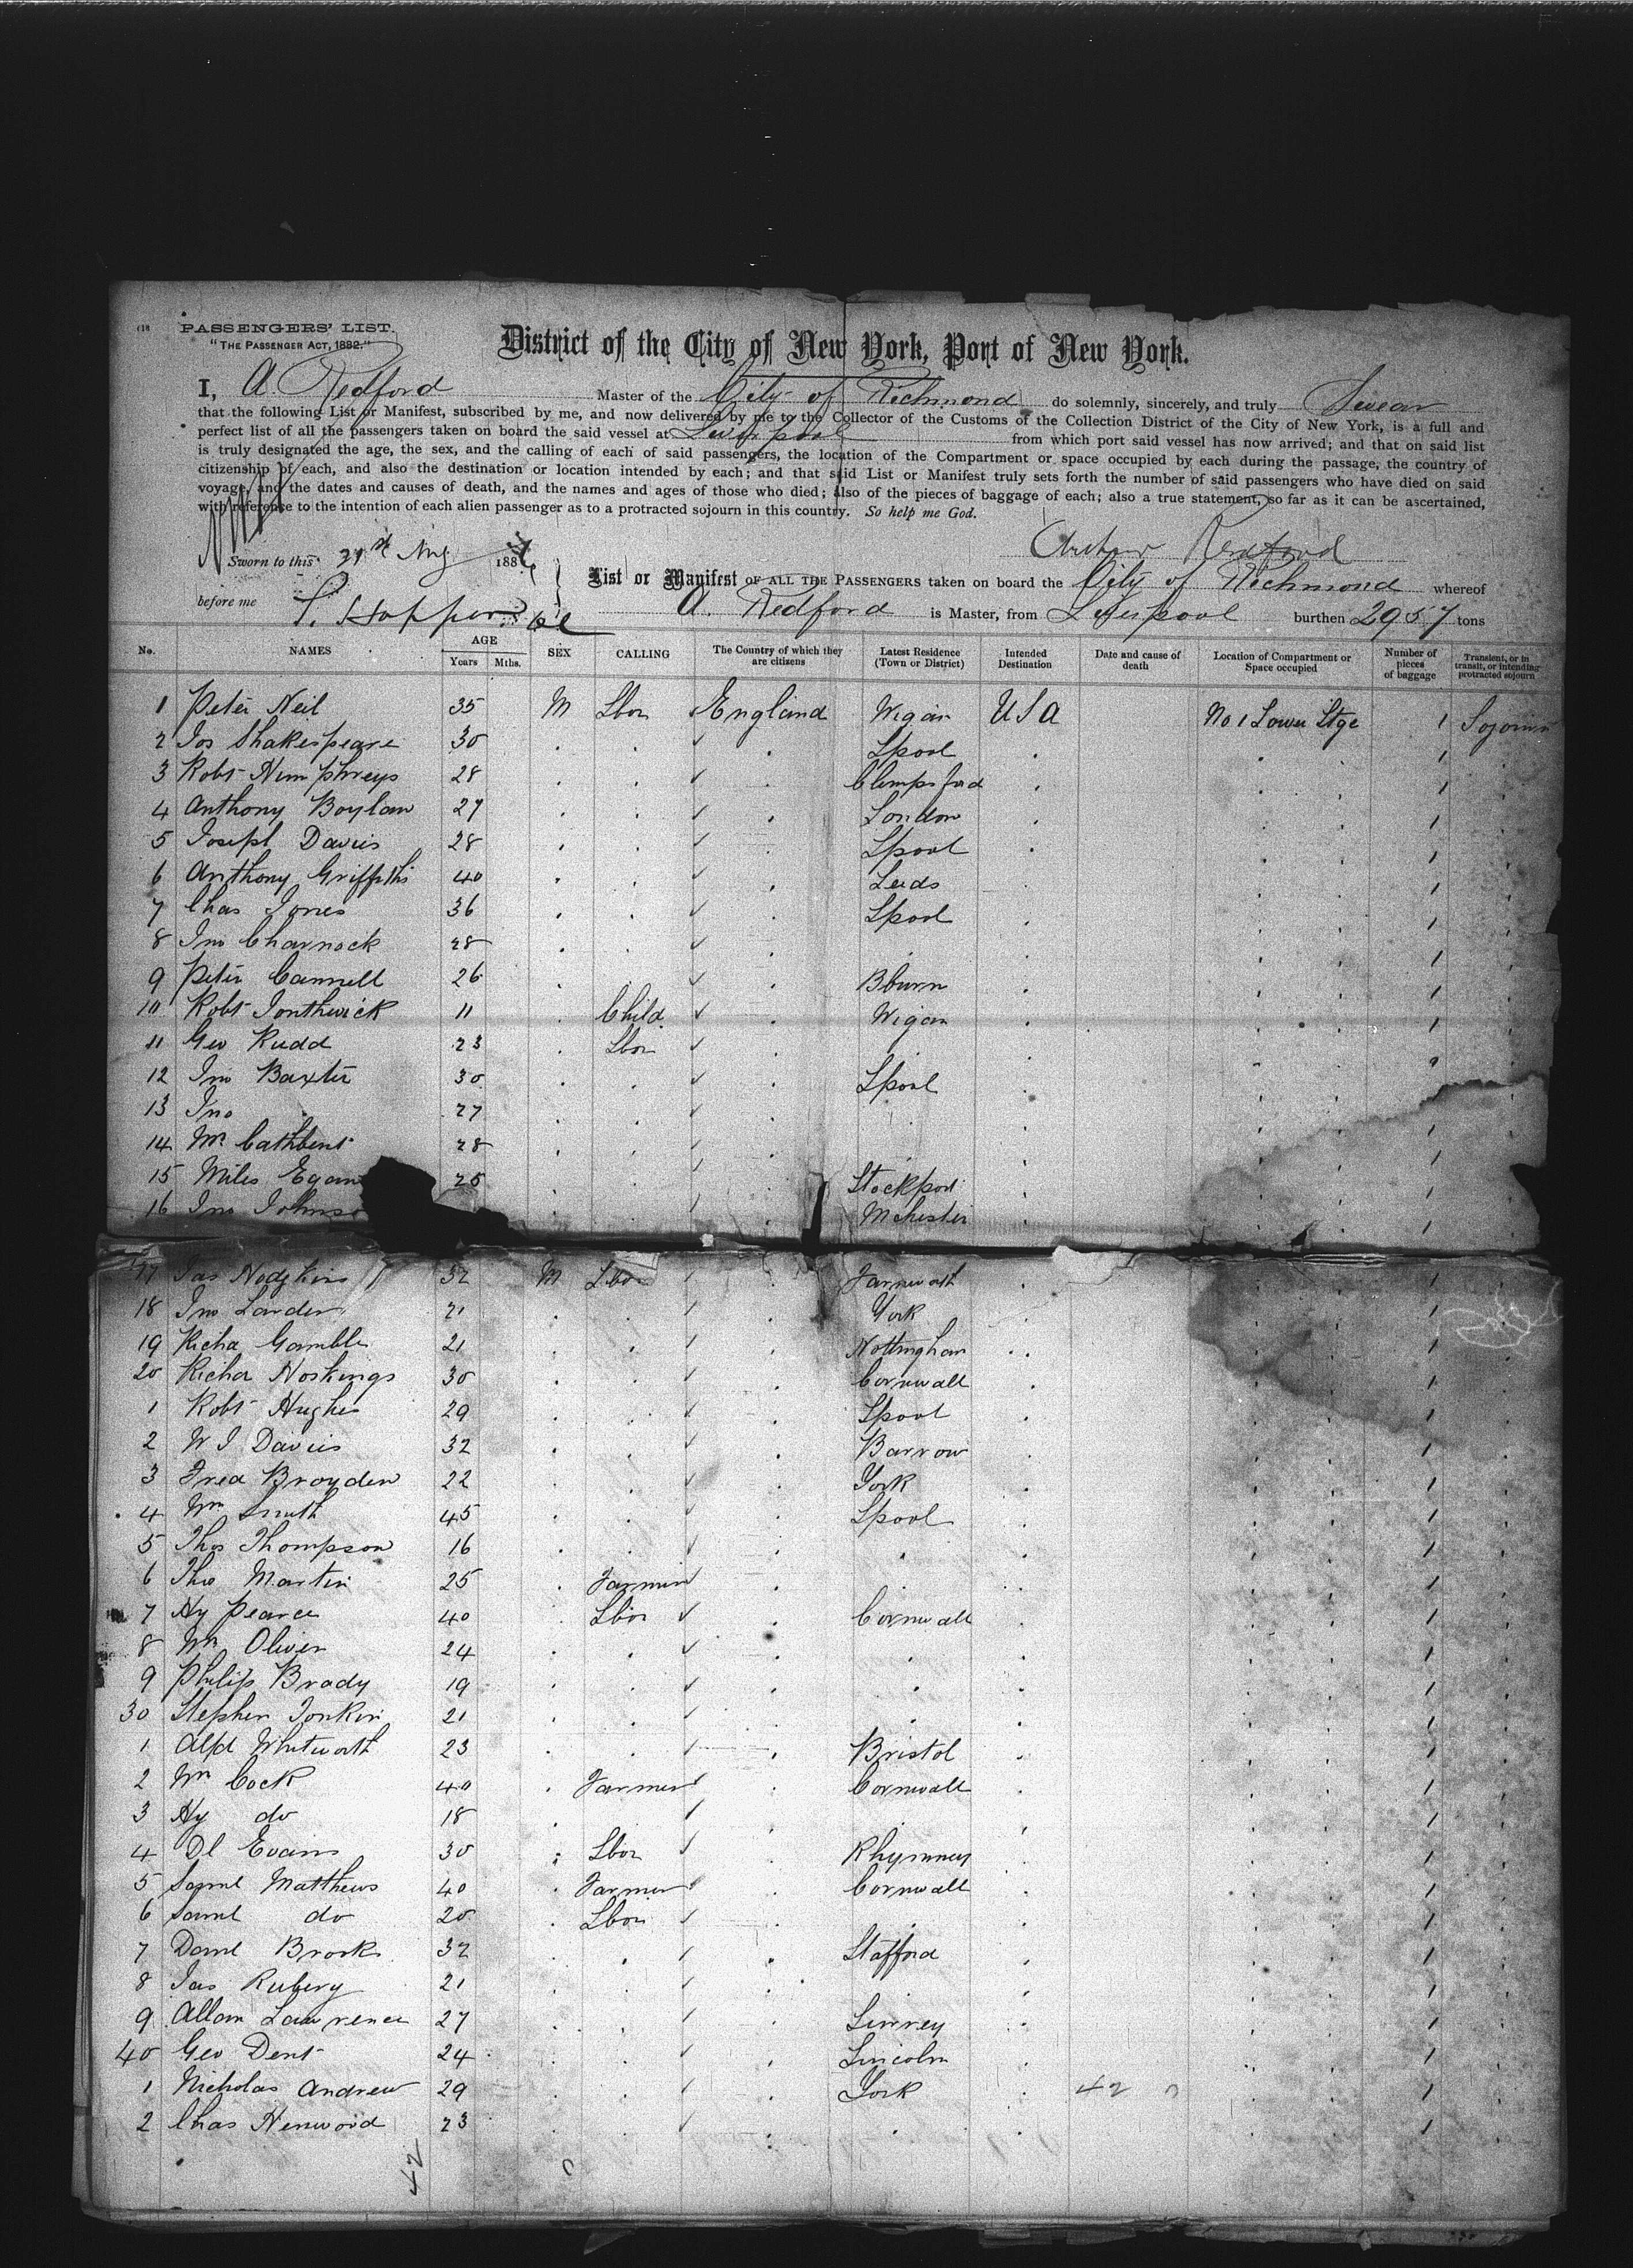 PASSENGERS' LIST.
"THE PASSENGER ACT, 1882."
District of the City of New York, Port of New York.
I, A. Redford Master of the City of Richmond do solemnly, sincerely, and truly Swear
that the following List or Manifest, subscribed by me, and now delivered by me to the Collector of the Customs of the Collection District of the City of New York, is a full and
perfect list of all the passengers taken on board the said vessel at Liverpool from which port said vessel has now arrived; and that on said list
is truly designated the age, the sex, and the calling of each of said passengers, the location of the Compartment or space occupied by each during the passage, the country of
citizenship of each, and also the destination or location intended by each; and that said List or Manifest truly sets forth the number of said passengers who have died on said
voyage, and the dates and causes of death, and the names and ages of those who died; also of the pieces of baggage of each; also a true statement, so far as it can be ascertained,
with reference to the intention of each alien passenger as to a protracted sojourn in this country. So help me God.
Redford
Sworn to this 21st Aug 1886
before me
List or Manifest OF ALL THE PASSENGERS taken on board the City of Richmond whereof
A. Redford is Master, from Liverpool burthen 2957 tons
No. NAMES AGE Years Mths. SEX CALLING The Country of which they are citizens Latest Residence (Town or District) Intended Destination Date and cause of death Location of Compartment or Space occupied Number of pieces of baggage Transient, or in transit, or intending protracted sojourn
1 Peter Neil 35 M Lbor England Wigan USA No 1 Lower Stge 1 Sojourn
2 Jos Shakespeare 30 Lpool 1
3 Robt Humphreys 28 1
4 Anthony Boylan 27 London 1
5 Joseph Davies 28 Lpool 1
6 Anthony Griffiths 40 Leeds 1
7 Chas Jones 36 Lpool 1
8 Jno Charnock 28 1
9 Peter Cannell 26 Bburn 1
10 Robt 11 Child Wigan 1
11 Geo Rudd 23 Lbor
12 Jno Baxter 30 Lpool 1
13 Jno 27 1
14 28 1
15 Miles Egan 25 Stockport 1
16 Jno Johnso Mchester 1
17 Jas Hodgkins 32 M Lbor Farnworth 1
18 Jno Lander 21 York 1
19 Richd Gamble 21 Nottingham 1
20 Richd Hoskings 30 Cornwall 1
1 Robt Hughes 29 Lpool 1
2 W J Davies 32 Barrow 1
3 Fred Broyden 22 York 1
4 Wm Smith 45 Lpool 1
5 Thos Thompson 16 1
6 Thos Martin 25 Farmer 1
7 Hy Pearce 40 Lbor Cornwall 1
8 Wm Oliver 24 1
9 Philip Brady 19 1
30 Stephen Jonkin 21 1
1 Alfd Whitworth 23 Bristol 1
2 Wm Cock 40 Farmer Cornwall 1
3 Hy do 18 1
4 Dl Evans 30 Lbor Rhymney 1
5 Saml Matthews 40 Farmer Cornwall 1
6 Saml do 20 Lbor 1
7 Danl Brooks 32 Stafford 1
8 Jas Rubery 21 1
9 Allan Lawrence 27 Surrey 1
40 Geo Dent 24 Lincoln 1
1 Nicholas Andrew 29 York 42 1
2 Chas Henwood 23 1
42